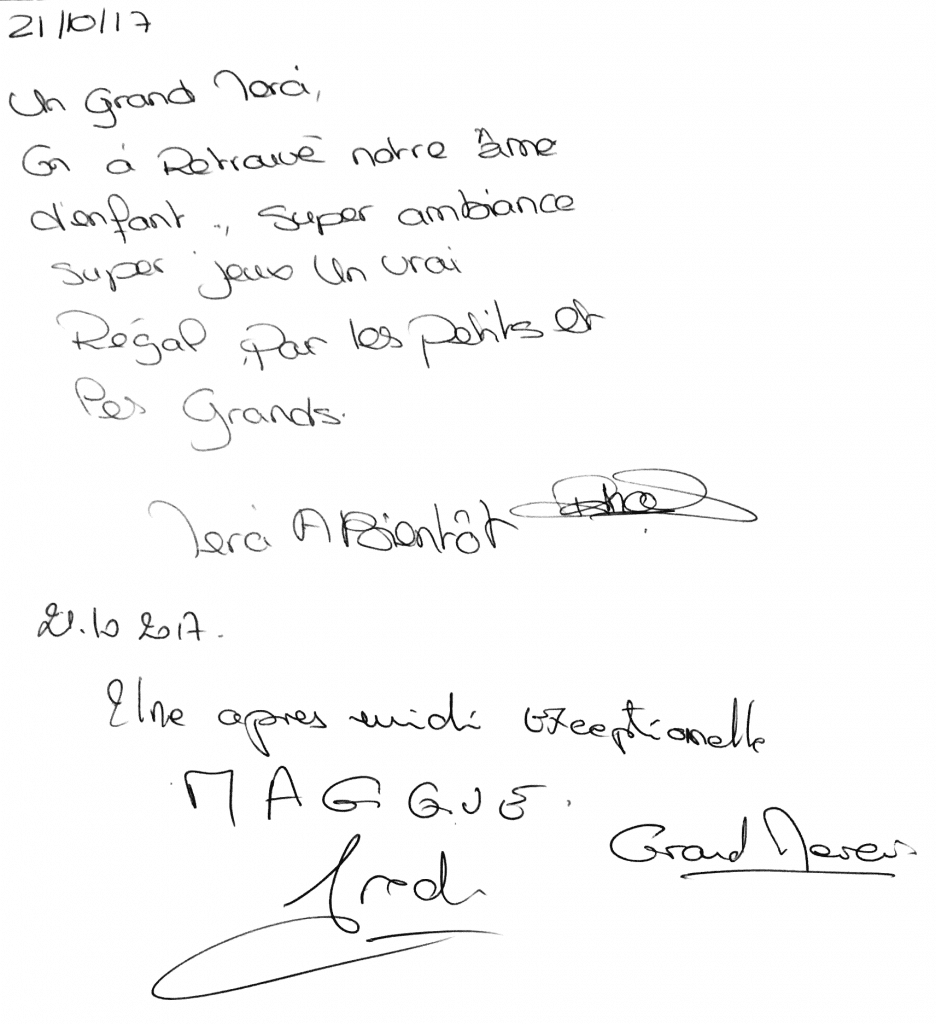 21/10/17
Un Grand Merci,
On à Retrouvé notre âme
d'enfant ., Super ambiance
super jeux Un vrai
Régal Par les petits et
les Grands.
Merci A Bientôt
21.10 2017.
Une apres midi exceptionelle
MAGGUE.
Grand Merci